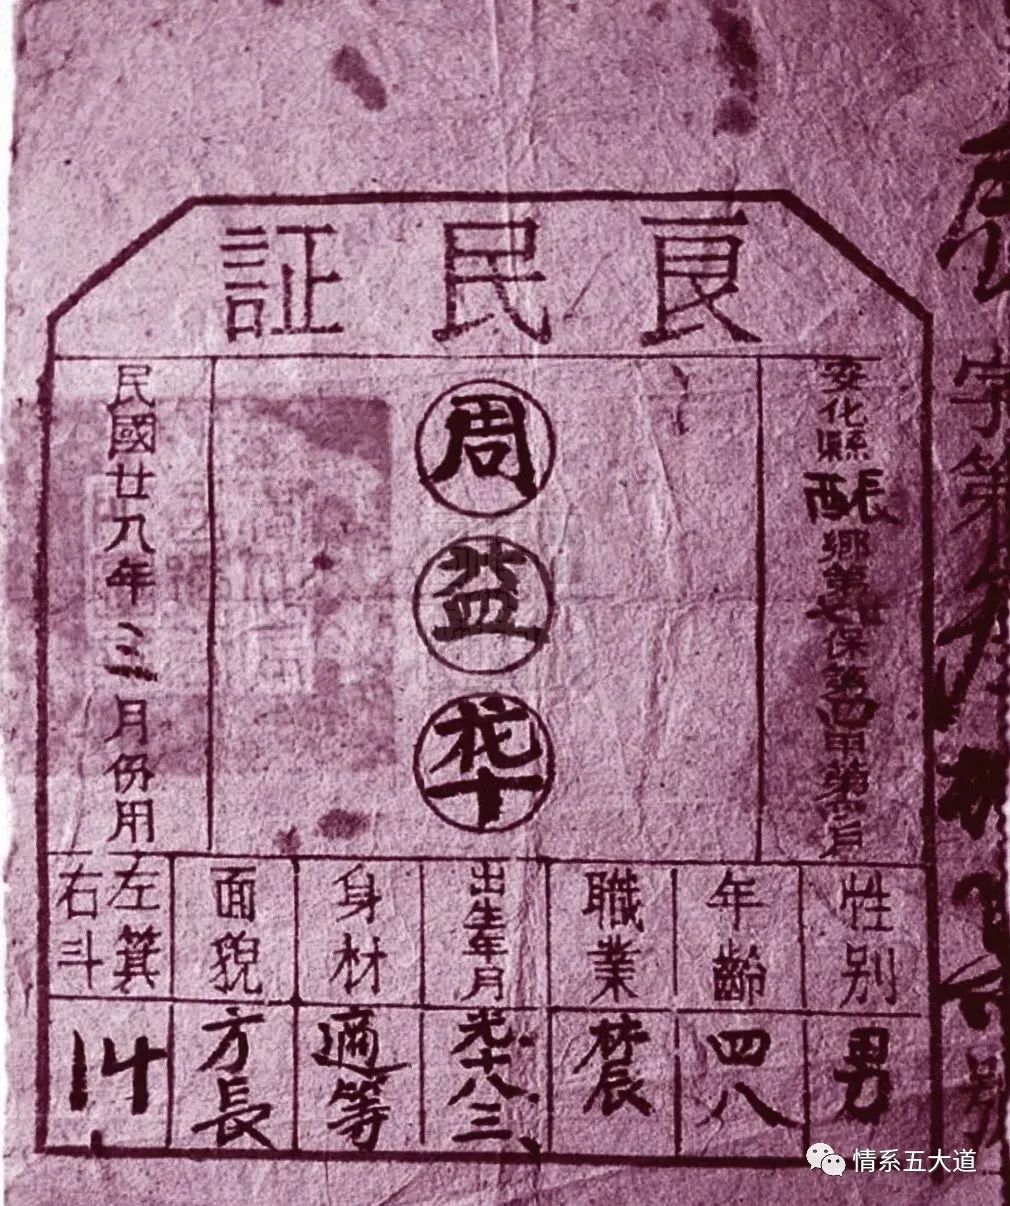 良民証
安化縣
鄉第
保第四甲第
戶
周益
民國廿八年三月份用
性別
男
年齡
四八
職業
出生年月
光十八三、
身材
適等
面貌
方長
左箕
右斗
字第
號
情系五大道